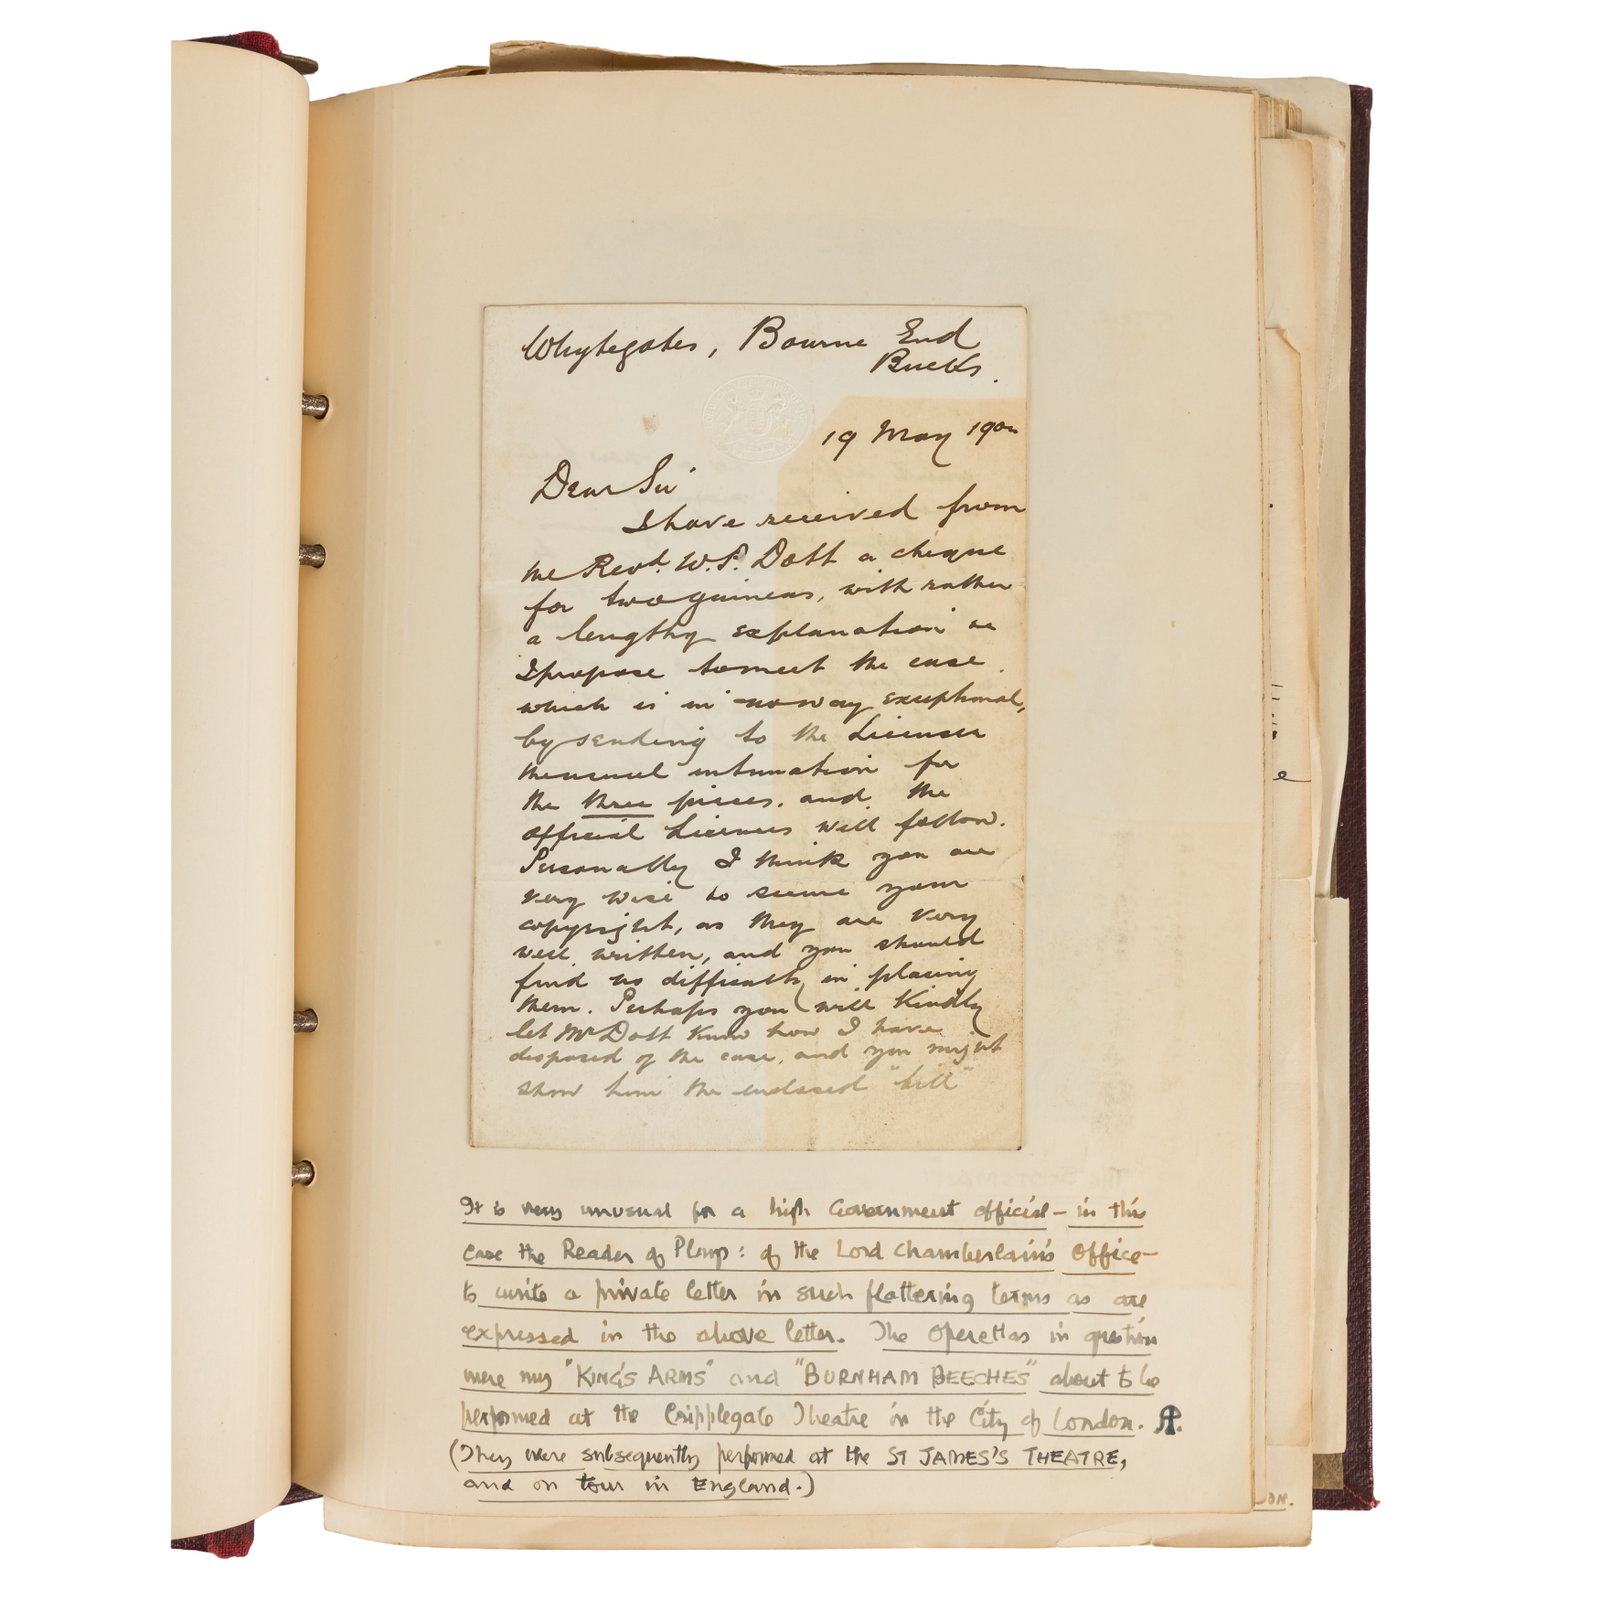 Whytegates, Bourne End
Bucks.
19 May 190
Dear Sir
I have received from
the Revd. W.P. Dott a cheque
for two guineas, with rather
a lengthy explanation as
I propose to meet the case
which is in no way exceptional,
by sending to the Licenser
the usual intimation for
the three pieces, and the
official Licenses will follow.
Personally I think you are
very wise to secure your
copyright, as they are very
well written, and you should
find no difficulty in placing
them. Perhaps you will kindly
let Mr Dott know how I have
disposed of the case, and you might
show him the enclosed "bill"
It is very unusual for a high Government official – in this
case the Reader of Plays: of the Lord Chamberlain's Office –
to write a private letter in such flattering terms as are
expressed in the above letter. The Operettas in question
were my "KING'S ARMS" and "BURNHAM BEECHES" about to be
performed at the Cripplegate Theatre in the City of London.
(They were subsequently performed at the ST JAMES'S THEATRE,
and on tour in England.)